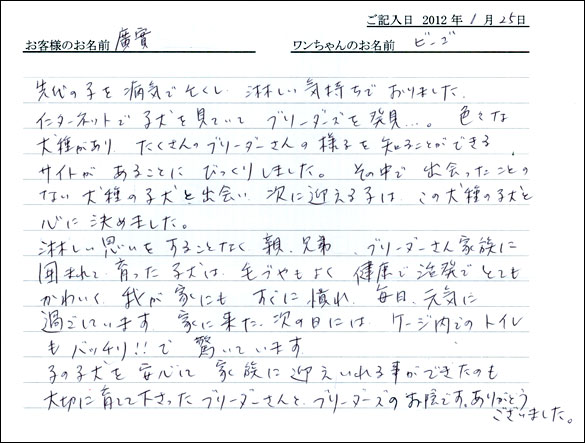 ご記入日 2012年 1月 25日
お客様のお名前 廣實 ワンちゃんのお名前 ビーゴ
先代の子を病気で亡くし 淋しい気持ちでおりました。
インターネットで子犬を見ていて ブリーダーズを発見…。 色々な
犬種があり たくさんのブリーダーさんの様子を知ることができる
サイトが あることに びっくりしました。 その中で 出会ったことの
ない犬種の子犬と出会い 次に迎える子は この犬種の子犬と
心に決めました。
淋しい思いをすることなく 親、兄弟、ブリーダーさん家族に
囲まれて 育った子犬は 毛づやもよく 健康で活発でとても
かわいく 我が家にも すぐに慣れ 毎日、元気に
過ごしています 家に来た、次の日には ケージ内でのトイレ
も バッチリ!!で 驚いています
子の子犬を 安心して 家族に迎えいれる事ができたのも
大切に育てて下さったブリーダーさんと、ブリーダーズのお陰です。ありがとう
ございました。